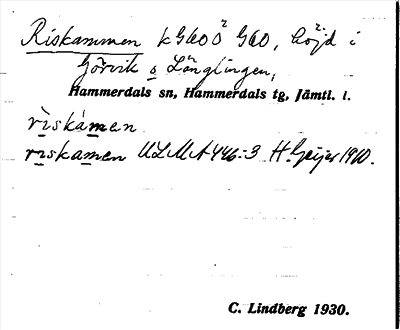 Riskammen k G600 Ö G60, höjd i
Görvik o Långlingen,
Hammerdals sn, Hammerdals tg, Jämtl. l.
rìskámen
riskamen ULMA 446:3 H. Geijer 1910.
C. Lindberg 1930.